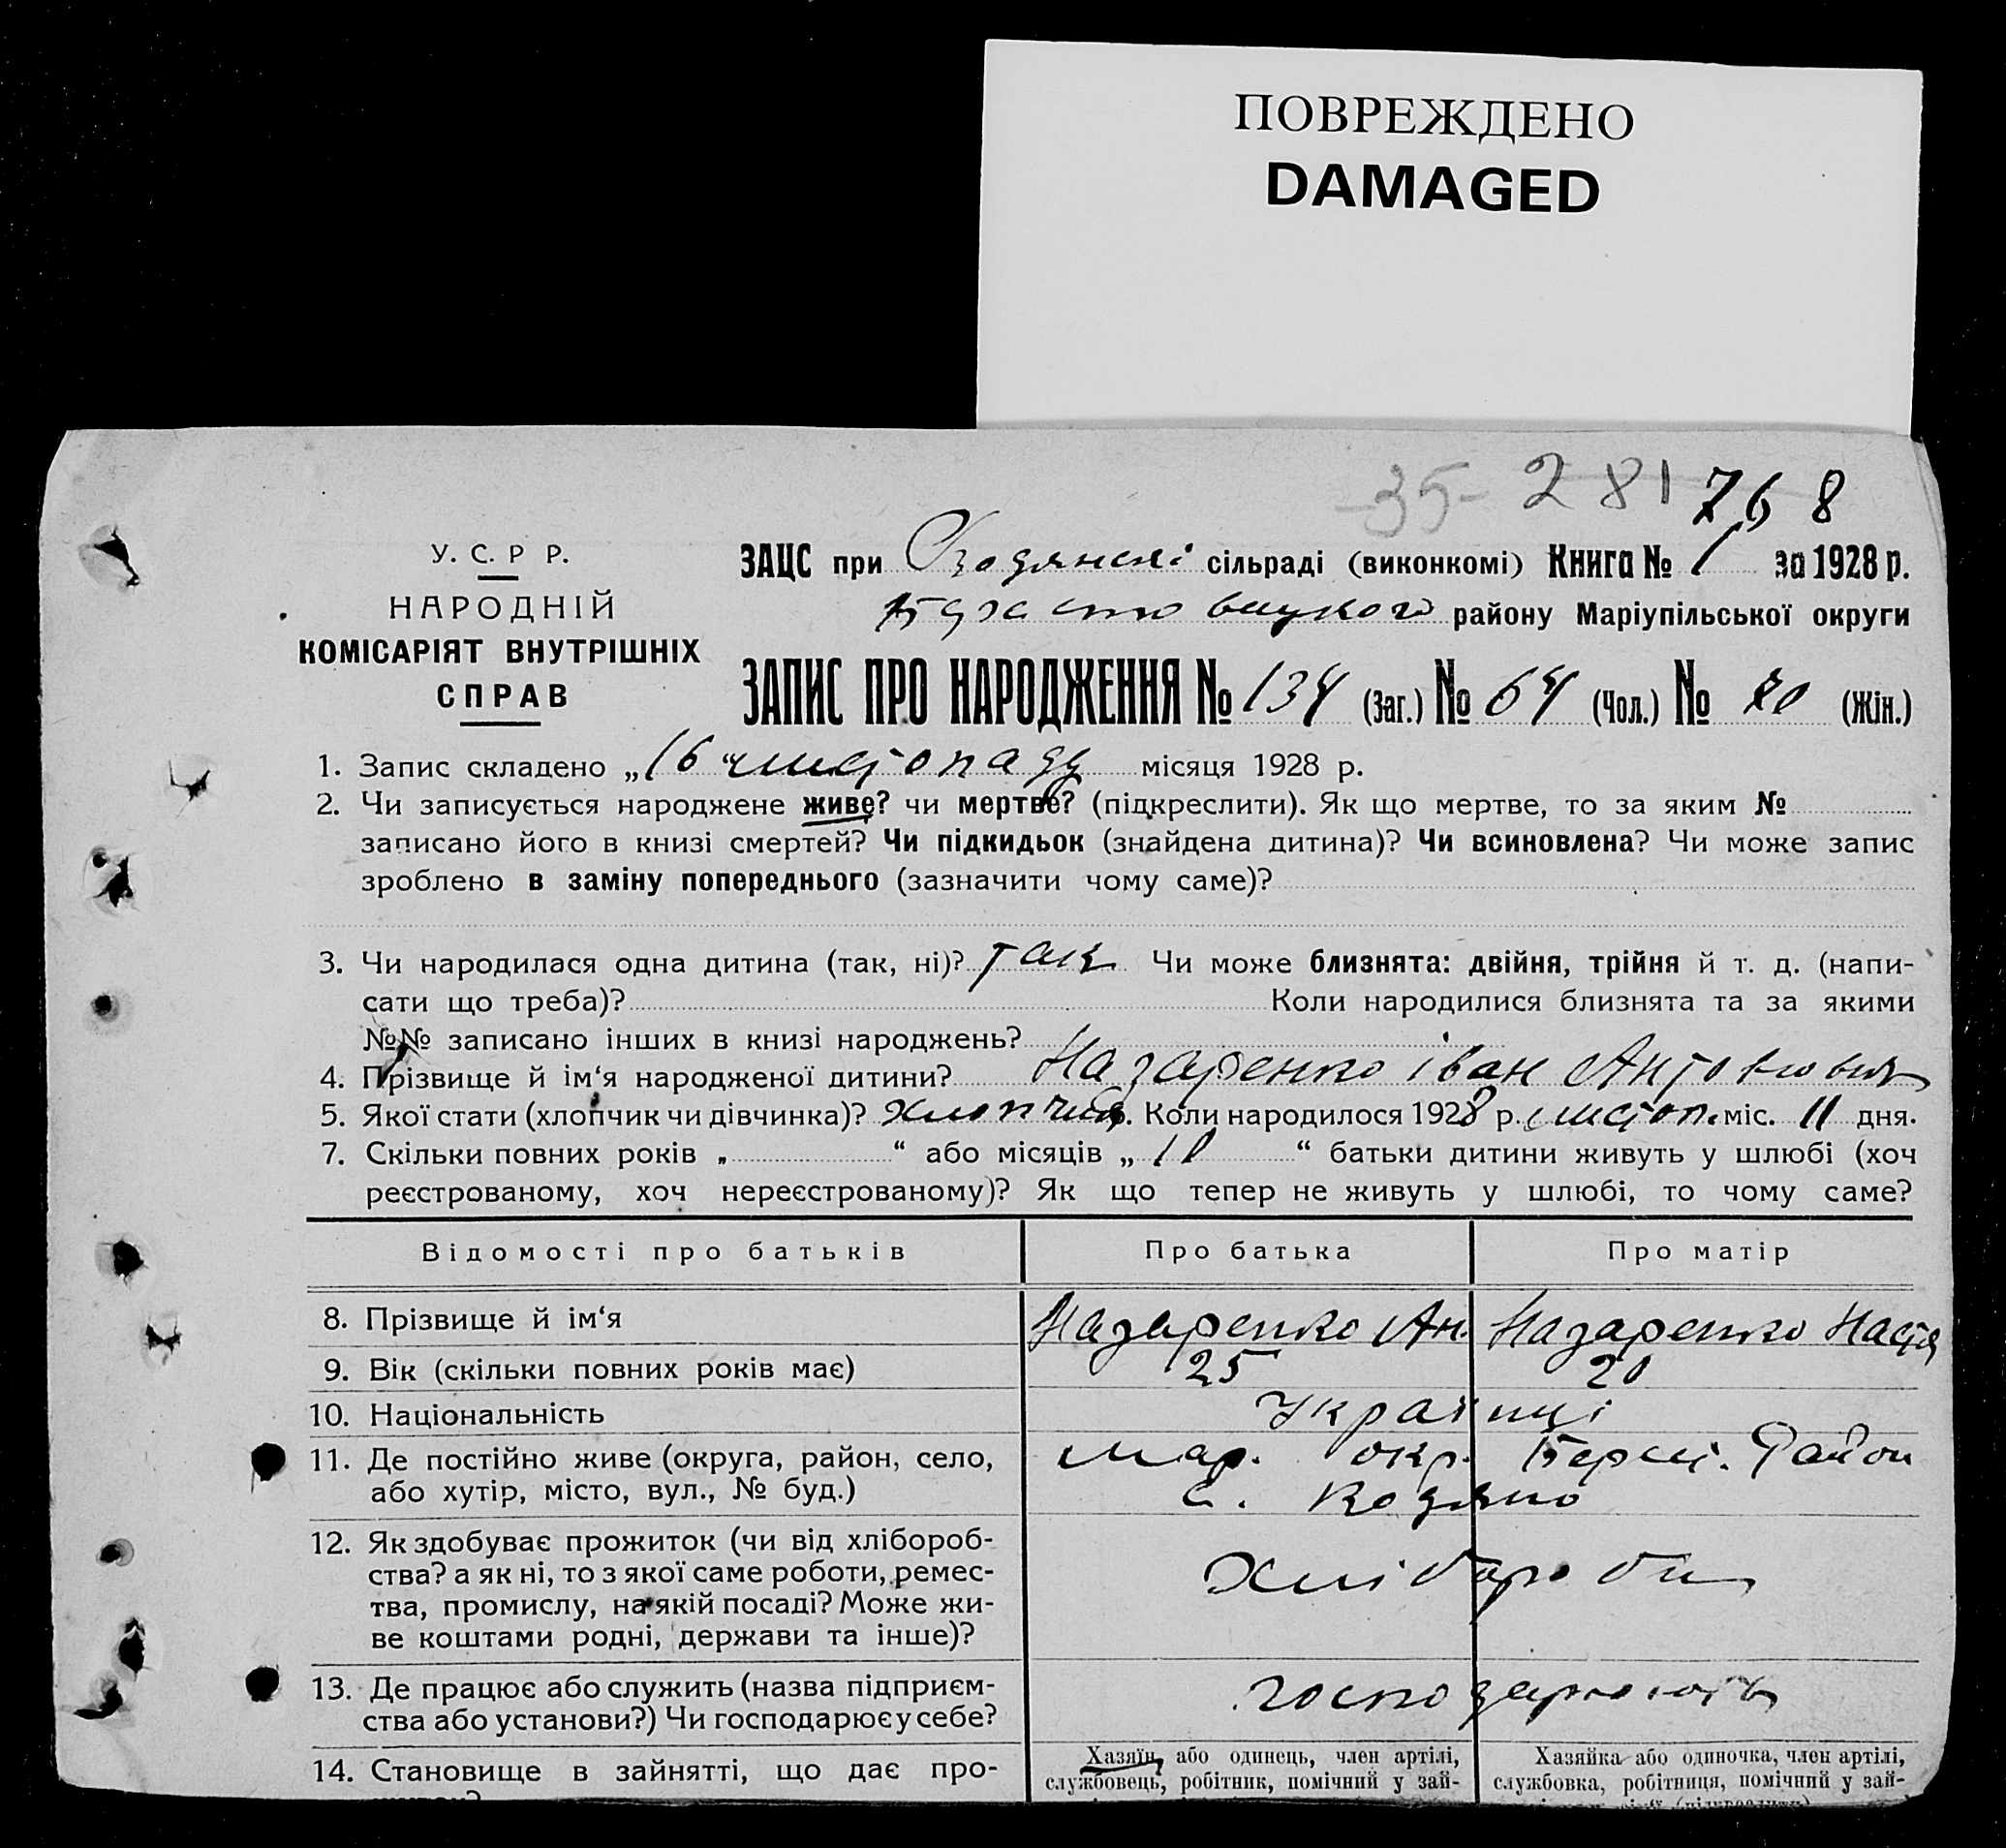 ПОВРЕЖДЕНО
DAMAGED
35- 281 768
У. С. Р Р.
НАРОДНІЙ
КОМІСАРІЯТ ВНУТРІШНІХ
СПРАВ
ЗАЦС при сільраді (виконкомі) Книга № 1 за 1928 р.
району Маріупільської округи
ЗАПИС ПРО НАРОДЖЕННЯ № 134 (Заг.) № 64 (Чол.) № 70 (Жін.)
1. Запис складено „16 листопаду місяця 1928 р.
2. Чи записується народжене живе? чи мертве? (підкреслити). Як що мертве, то за яким №
записано його в книзі смертей? Чи підкидьок (знайдена дитина)? Чи всиновлена? Чи може запис
зроблено в заміну попереднього (зазначити чому саме)?
3. Чи народилася одна дитина (так, ні)? так Чи може близнята: двійня, трійня й т. д. (напи-
сати що треба)? Коли народилися близнята та за якими
№№ записано інших в книзі народжень?
4. Прізвище й ім‘я народженої дитини? Назаренко іван Антонович
5. Якої стати (хлопчик чи дівчинка)? хлопчик. Коли народилося 1928 р. листоп. міс. 11 дня.
7. Скільки повних років „ “ або місяців „ 10 “ батьки дитини живуть у шлюбі (хоч
реєстрованому, хоч нереєстрованому)? Як що тепер не живуть у шлюбі, то чому саме?
Відомості про батьків Про батька Про матір
8. Прізвище й ім‘я Назаренко Ан. Назаренко Настя
9. Вік (скільки повних років має) 25 20
10. Національність Українці
11. Де постійно живе (округа, район, село, Мар. окр. Район
або хутір, місто, вул., № буд.) с. Водяно
12. Як здобуває прожиток (чи від хлібороб-
ства? а як ні, то з якої саме роботи, ремес- Хлібороби
тва, промислу, на якій посаді? Може жи-
ве коштами родні, держави та інше)?
13. Де працює або служить (назва підприєм- господарюють
ства або установи?) Чи господарює у себе?
14. Становище в зайнятті, що дає про- Хазяїн, або одинець, член артілі, Хазяйка або одиночка, член артілі,
службовець, робітник, помічний у зай- службовка, робітниця, помічний у зай-